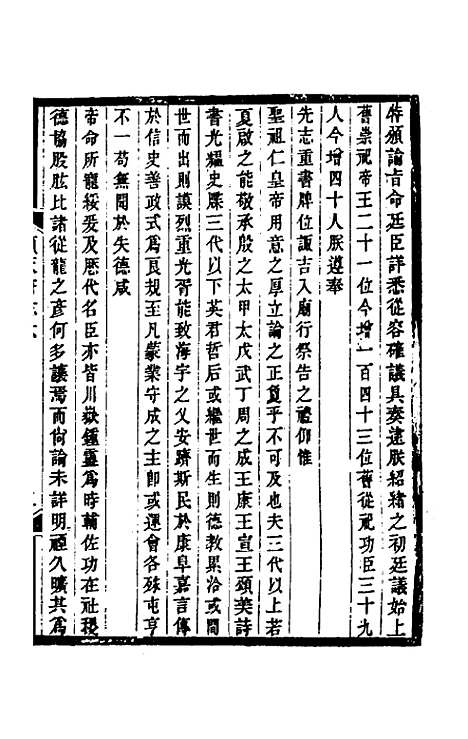 特頒諭旨命廷臣詳悉從容確議具奏逮朕紹緒之初廷議始上
舊崇祀帝王二十一位今增一百四十三位舊從祀功臣三十九
人今增四十人朕遵奉
先志重書牌位諏吉入廟行祭告之禮仰惟
聖祖仁皇帝用意之厚立論之正敻乎不可及也夫三代以上若
夏啟之能敬承殷之太甲太戊武丁周之成王康王宣王頌美詩
書光耀史牒三代以下英君哲后或繼世而生則德教累洽或間
世而出則謨烈重光胥能致海宇之乂安躋斯民於康阜嘉言傳
於信史善政式為良規至凡蒙業守成之主即或運會各殊屯亨
不一苟無聞於失德咸
帝命所寵綏爰及歷代名臣亦皆川嶽鍾靈為時輔佐功在社稷
德協股肱比諸從龍之彥何多讓焉而尙論未詳明禋久曠其為